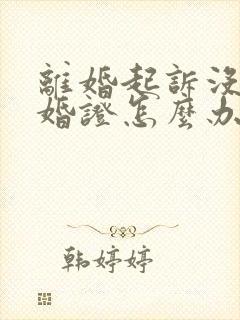 離婚起訴沒
婚證怎麼办
韩婷婷